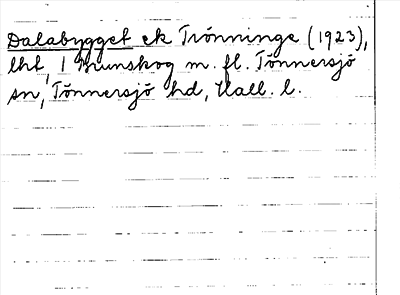 Dalabygget ek Trönninge (1923),
lht, 1 Brunskog m. fl. Tönnersjö
sn, Tönnersjö hd, Hall. l.